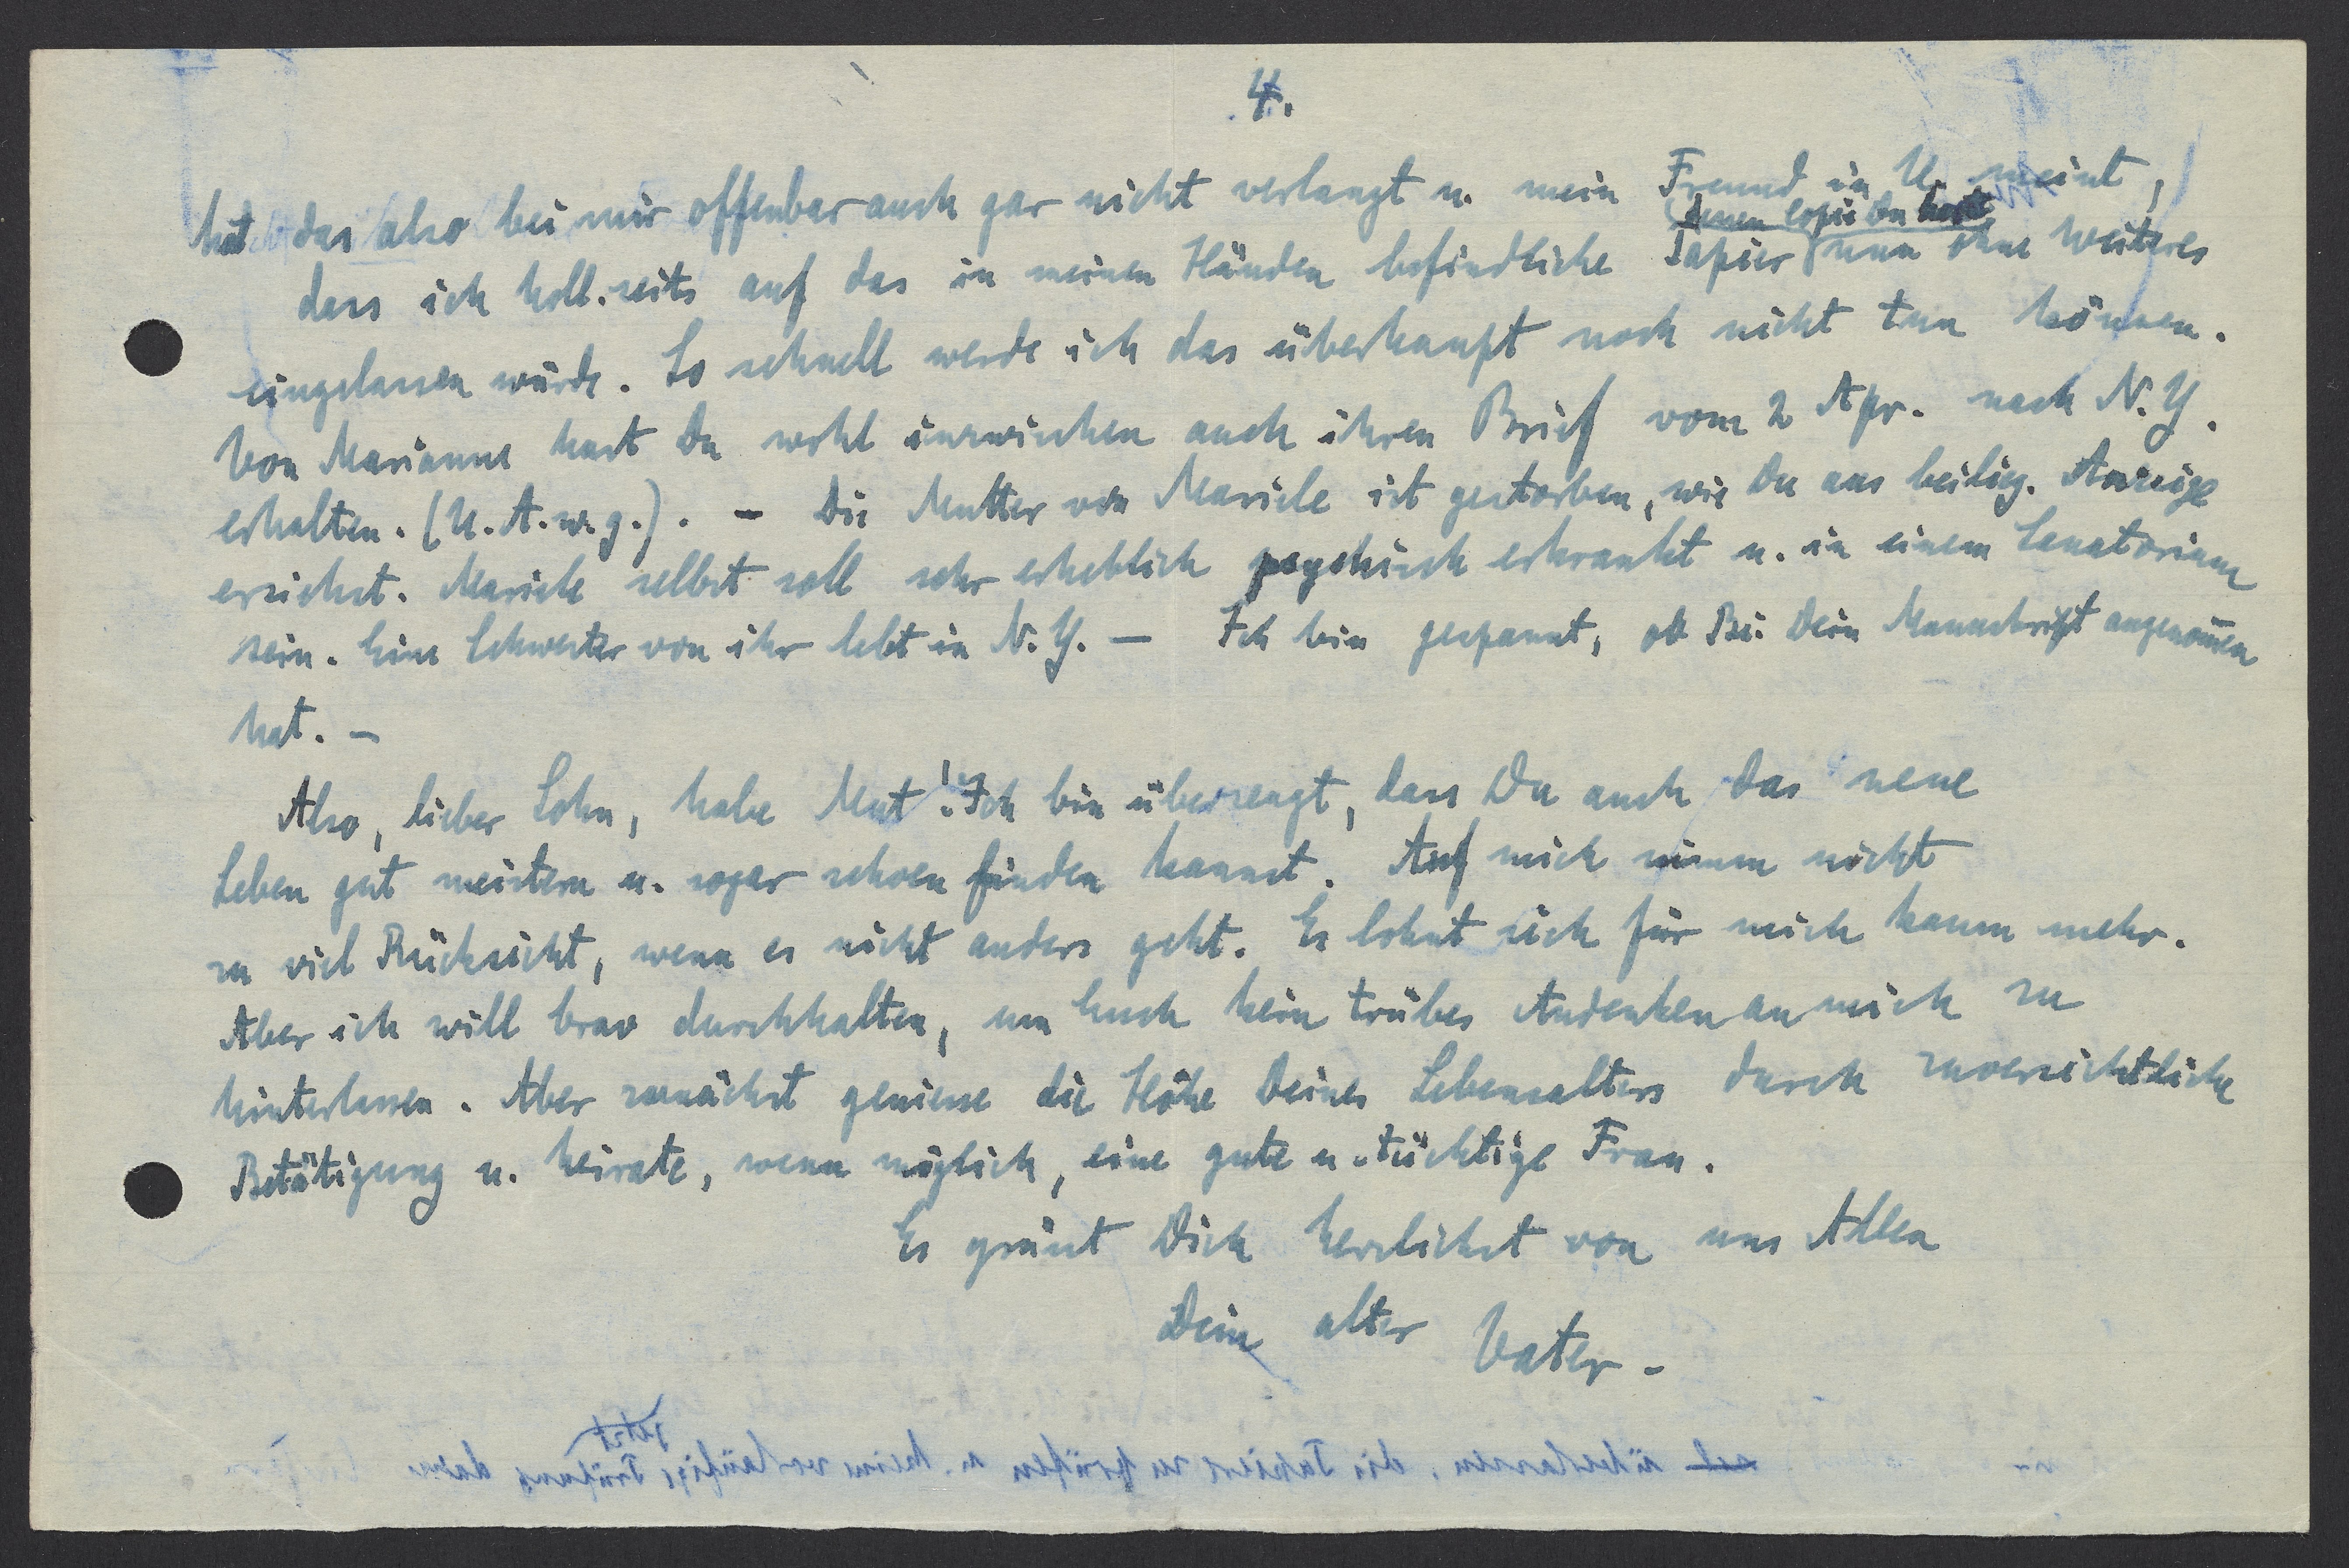 4.
hat das also bei mir offenbar auch gar nicht verlangt u. mein Freund in U. meint,
(dessen Copie Du hast
dass ich holl.seits auf das in meinen Händen befindliche Papier nun ohne weiteres
eingelassen würde. So schnell werde ich das überhaupt noch nicht tun können.
Von Marianne hast Du wohl inzwischen auch ihren Brief vom 2 Apr. nach N.Y.
erhalten. (U.A.w.g.). - Die Mutter von Mariele ist gestorben, wie Du aus beilieg. Anzeige
ersiehst. Mariele selbst soll sehr erheblich psychisch erkrankt u. in einem Sanatorium
sein. Eine Schwester von ihr lebt in N.Y. - Ich bin gespannt, ob Bei. Dein Manuskript angenom̄en
hat. -
Also, lieber Sohn, habe Mut! Ich bin überzeugt, dass Du auch das neue
Leben gut meistern u. sogar schoen finden kannst. Auf mich nimm nicht
zu viel Rücksicht, wenn es nicht anders geht. Es lohnt sich für mich kaum mehr.
Aber ich will brav durchhalten, um Euch kein trübes Andenken an mich zu
hinterlassen. Aber zunächst geniesse die Höhe Deines Lebensalters durch zuversichtliche
Betätigung u. heirate, wenn möglich, eine gute u. tüchtige Frau.
Es grüsst Dich herzlichst von uns Allen
Dein alter Vater -